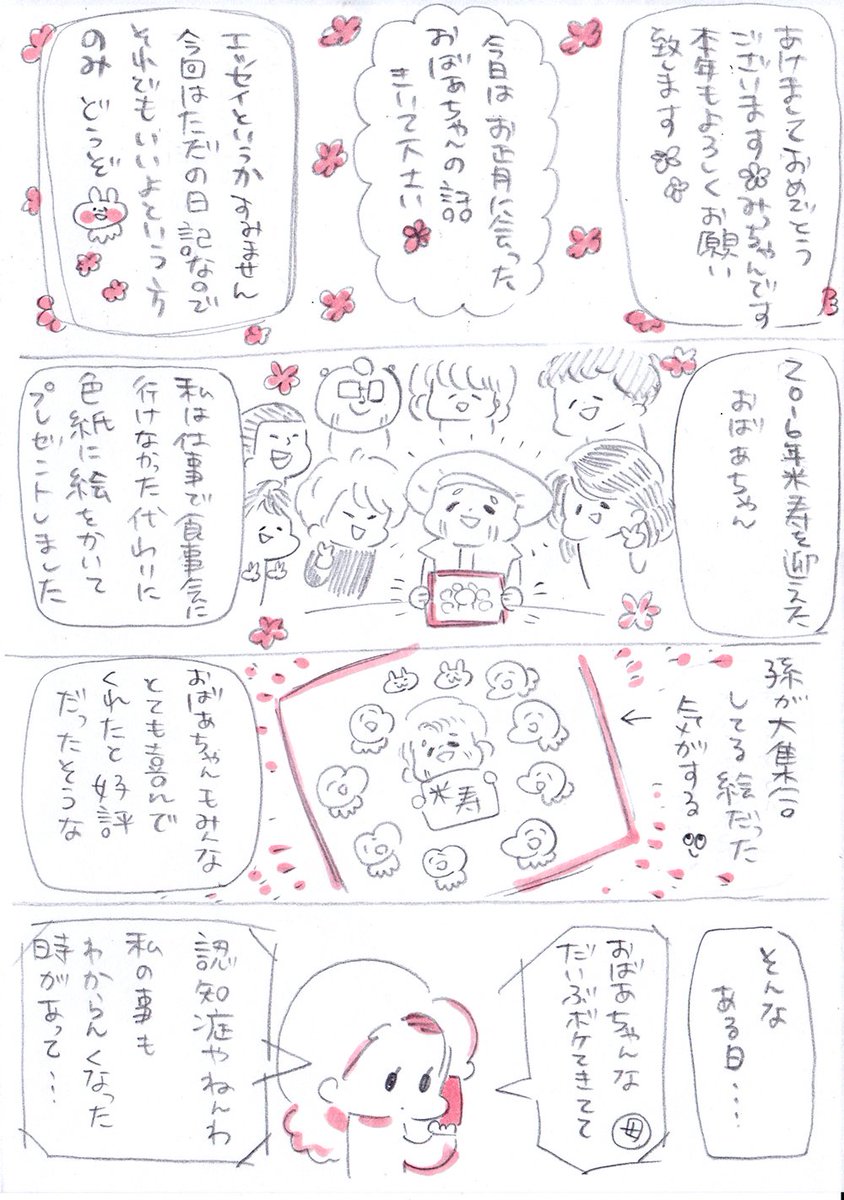 あけましておめでとう
ございます みっちゃんです
本年もよろしくお願い
致します
今日はお正月に会った
おばあちゃんの話
きいて下さい
エッセイというかすみません
今回はただの日記なので
それでもいいよという方
のみ どうぞ
2016年米寿を迎えた
おばあちゃん
私は仕事で食事会に
行けなかった代わりに
色紙に絵をかいて
プレゼントしました
孫が大集合
してる絵だった
気がする
米寿
おばあちゃんもみんな
とても喜んで
くれたと好評
だったそうな
そんな
ある日....
おばあちゃんな
だいぶボケてきてて
母
認知症やねんわ
私の事も
わからんくなった
時があって...